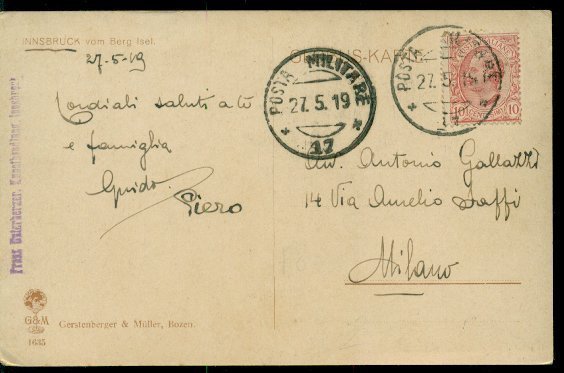 INNSBRUCK vom Berg Isel.
27-5-19
Cordiali saluti a te
e famiglia
Guido
Piero
POSTA MILITARE
27.5.19
17
POSTA MILITARE
27.5.19
17
10 10
Avv. Antonio Gallazzi
14 Via Aurelio Saffi
Milano
Franz Unterberger, Kunsthandlung, Innsbruck
G&M
1635
Gerstenberger & Müller, Bozen.